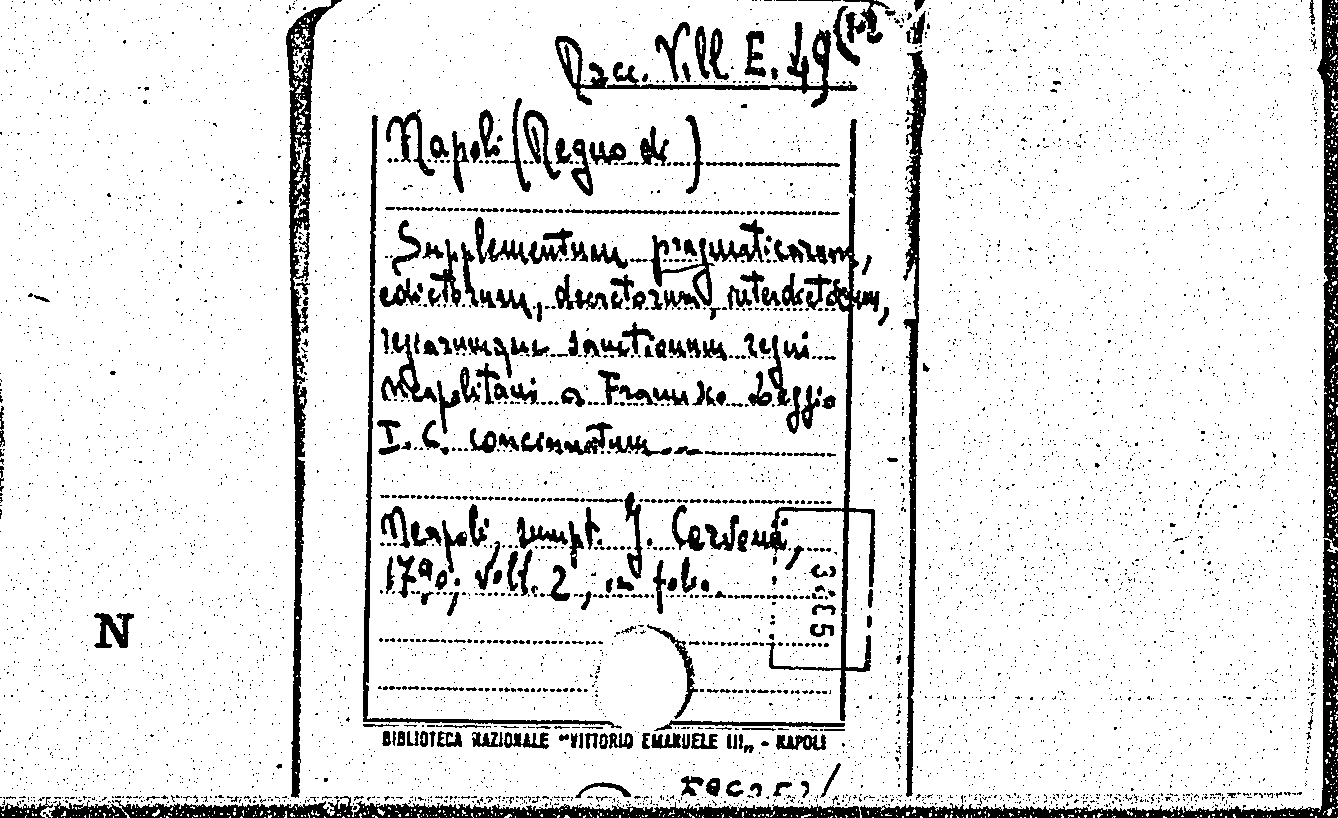 Racc. Vill E. 49 (1-2
Napoli (Regno di)
Supplementum pragmaticarum,
edictorum, decretorum, interdictorum,
regiarumque sanctionum regni
neapolitani a Francisco Leggio
I. C. concinnatum...
Neapoli, sumpt. J.
1790; Voll. 2, in folio.
N
BIBLIOTECA NAZIONALE "VITTORIO EMANUELE III„ - NAPOLI